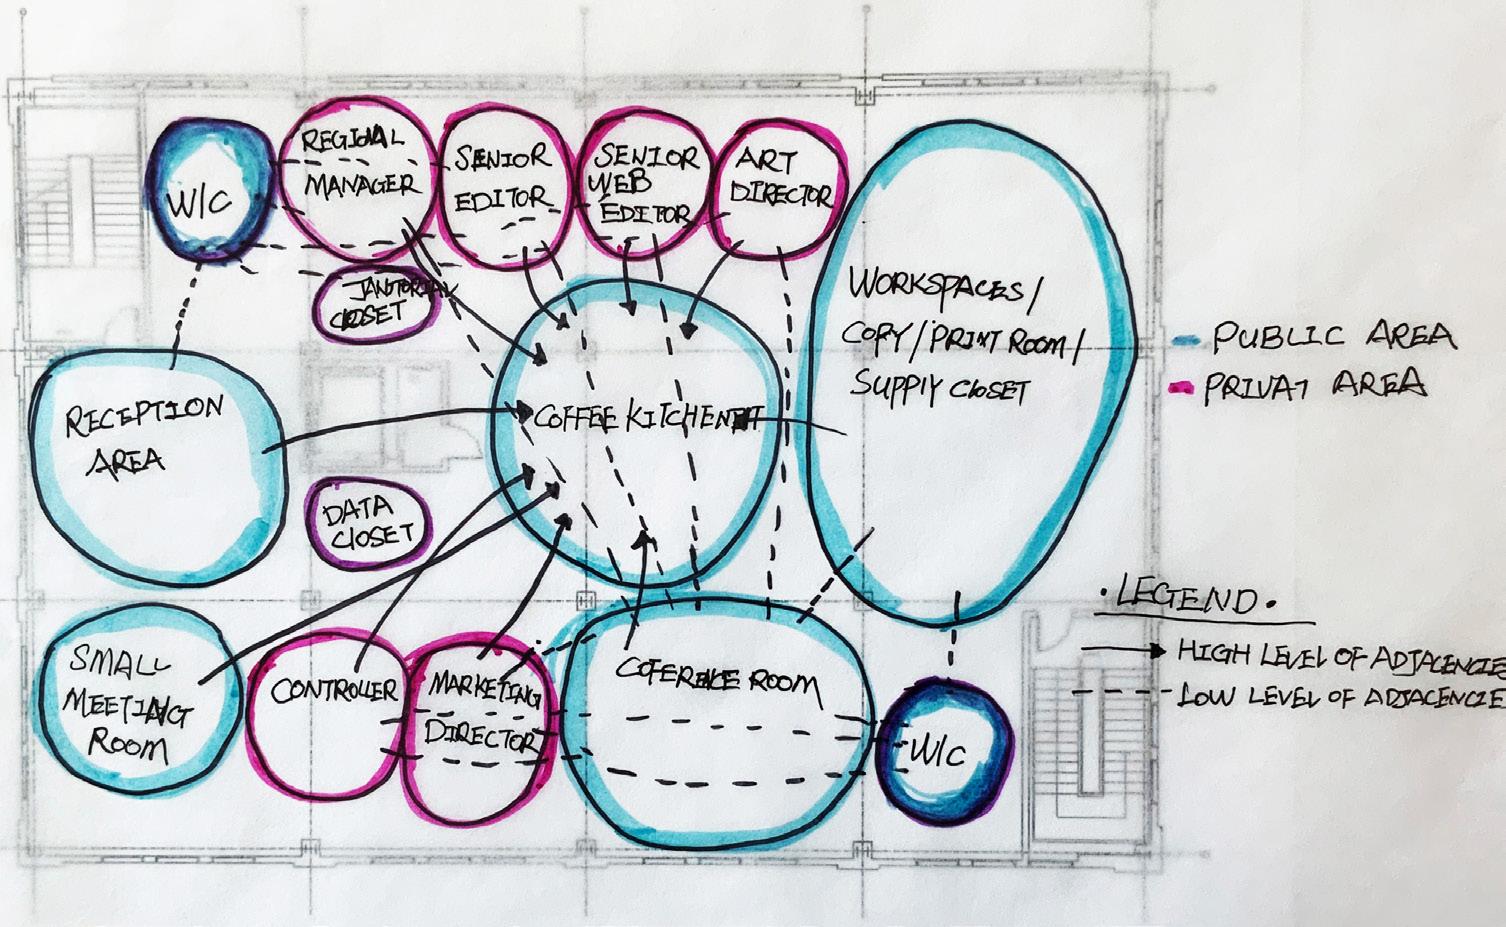 W/C
REGIONAL
MANAGER
SENIOR
EDITOR
SENIOR
WEB
EDITOR
ART
DIRECTOR
JANITORIAL
CLOSET
WORKSPACES/
COPY/PRINT ROOM/
SUPPLY CLOSET
PUBLIC AREA
PRIVAT AREA
RECEPTION
AREA
COFFEE KITCHENETT
DATA
CLOSET
• LEGEND •
HIGH LEVEL OF ADJACENCIE
LOW LEVEL OF ADJACENCIE
SMALL
MEETING
ROOM
CONTROLLER
MARKETING
DIRECTOR
COFERENCE ROOM
W/C